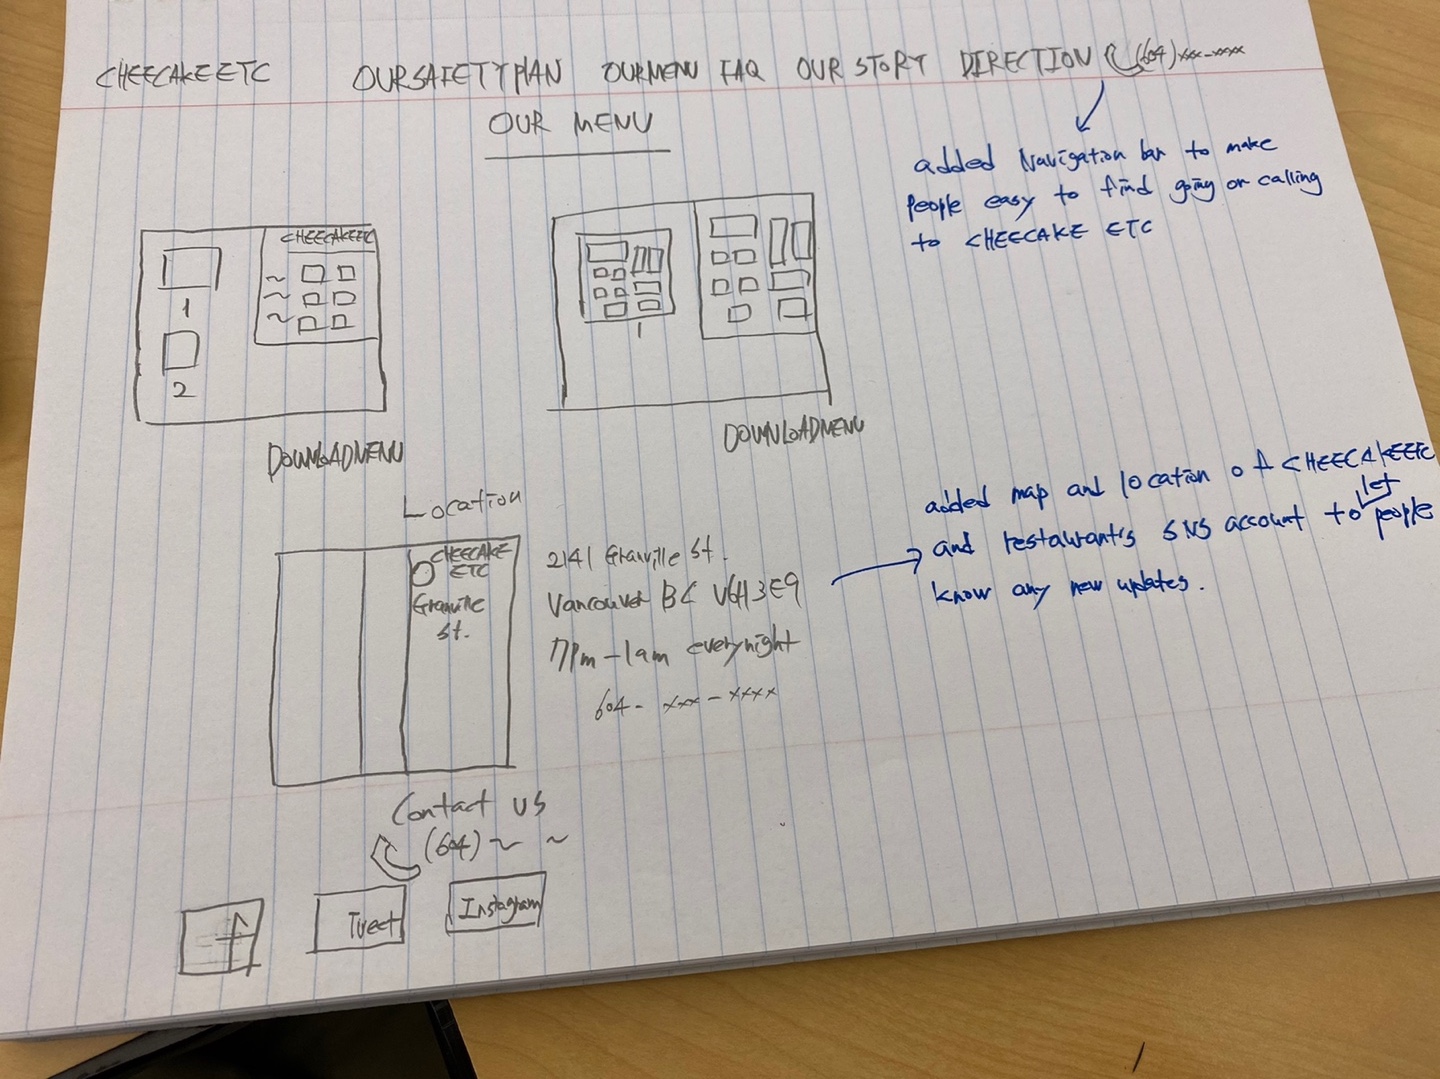 CHEECAKE ETC OUR SAFETY PLAN OUR MENU FAQ OUR STORY DIRECTION (604) xxx-xxxx
OUR MENU
added Navigation bar to make
people easy to find going or calling
to CHEECAKE ETC
CHEECAKEETC
1
2
DOWNLOADMENU
1
DOWNLOADMENU
Location
CHEECAKE
ETC
Granville
st.
2141 Granville st.
Vancouver BC V6H3E9
7pm-1am everynight
604- xxx-xxxx
added map and location of CHEECAKEETC
and restaurant's SNS account to let people
know any new updates.
Contact us
(604) ~ ~
f
Tweet
Instagram